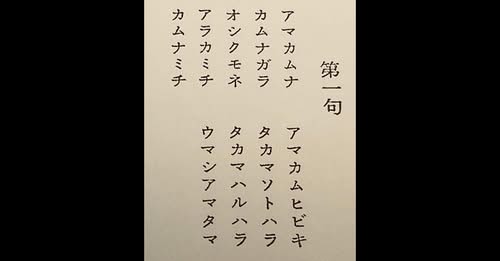 第一句
アマカムナ　アマカムヒビキ
カムナガラ　タカマソトハラ
オシクモネ　タカマハルハラ
アラカミチ　ウマシアマタマ
カムナミチ